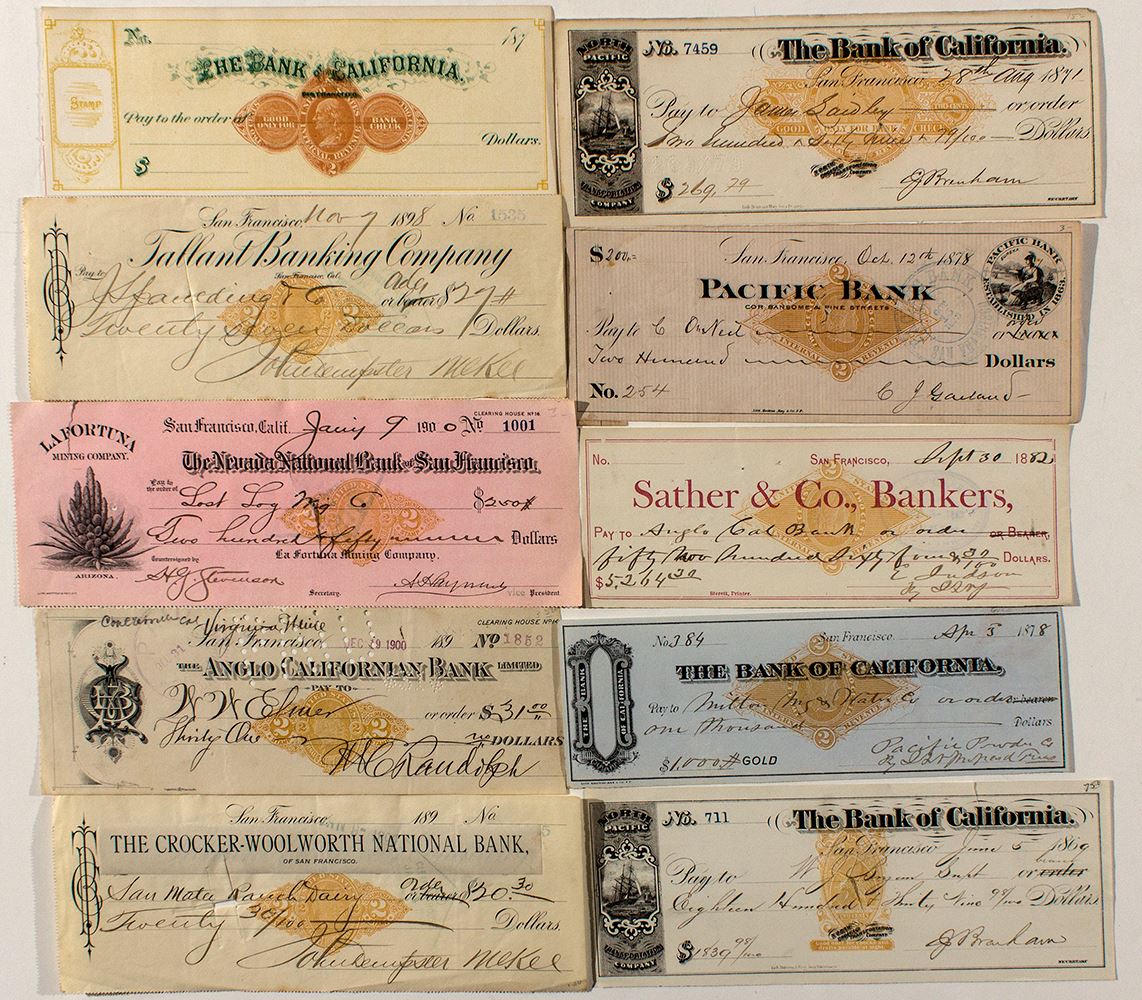 No. 187
THE BANK OF CALIFORNIA.
SAN FRANCISCO.
STAMP
Pay to the order of
GOOD ONLY FOR BANK CHECK
INTERNAL REVENUE
2
Dollars.
$
NORTH PACIFIC TRANSPORTATION COMPANY
No. 7459 The Bank of California.
San Francisco, 28th Aug 1871
Pay to James Lawley or order
Two hundred & Sixty nine & 79/100 Dollars
GOOD ONLY FOR BANK CHECK
TWO CENTS
NORTH PACIFIC TRANSPORTATION COMPANY
$269.79 J Branham
SECRETARY
San Francisco, Nov 7 1898 No. 1535
Tallant Banking Company
San Francisco, Cal.
Pay to J Spaulding & Co order or bearer $27
Twenty Seven Dollars Dollars.
John Dempster McKee
$200 San Francisco, Oct. 12th 1878
PACIFIC BANK
COR. SANSOME & PINE STREETS
PACIFIC BANK
EUREKA
ESTABLISHED IN 1863
Pay to C or
Two Hundred Dollars
INTERNAL REVENUE
2
No. 254 C J Garland
CLEARING HOUSE Nº 14
LA FORTUNA MINING COMPANY.
ARIZONA.
San Francisco, Calif. Jany 9 1900 No 1001
The Nevada National Bank of San Francisco,
Pay to the order of Lost Log Mg Co $250
Two hundred & fifty Dollars
La Fortuna Mining Company.
Countersigned by
H G Stevenson
Secretary. vice President
No. SAN FRANCISCO, Sept 30 1882
Sather & Co., Bankers,
PAY TO Anglo Cal Bank or order OR BEARER,
fifty two hundred sixty four 30/100 DOLLARS.
$5264 30 E Judson
Sterett, Printer.
CLEARING HOUSE Nº 14
Virginia Heise
San Francisco, DEC 29 1900 189 No 1852
THE ANGLO CALIFORNIAN BANK LIMITED
PAY TO
W W Elmer or order $31 00
Thirty One no DOLLARS
W C Randolph
THE BANK OF CALIFORNIA
No. 384 San Francisco. Apr 3 1878
THE BANK OF CALIFORNIA,
Pay to Milton Mg & Water Co or order or bearer
One thousand Dollars
$1,000 GOLD Pacific Powder Co
San Francisco, 189 No.
THE CROCKER-WOOLWORTH NATIONAL BANK,
OF SAN FRANCISCO.
San Mateo Ranch Dairy order or bearer $20.30
Twenty 30/100 Dollars.
John Dempster McKee
NORTH PACIFIC TRANSPORTATION COMPANY
No. 711 The Bank of California.
San Francisco June 5 1869
Pay to W J Supt or bearer order
Eighteen Hundred & Thirty Nine 98/100 Dollars
NORTH PACIFIC TRANSPORTATION COMPANY
$1839 98/100 J Branham
SECRETARY